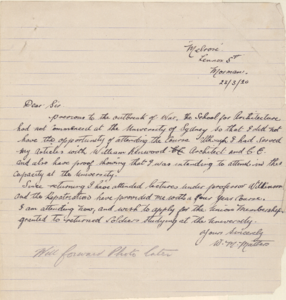 "Melrose"
Lennox St
Mosman.
22/3/20
Dear Sir
previous to the outbreak of war, the School for Architecture
had not commenced at the University of Sydney so that I did not
have the opportunity of attending the course although I had served
my articles with William Architect and C.E.
and also have proof showing that I was intending to attend in this
capacity at the University.
Since returning I have attended lectures under professor Wilkinson
and the Repatriation have provided me with a four year course.
I am attending now, and wish to apply for the Union Membership
granted to returned soldiers studying at the University.
Yours Sincerely
W. M.
Will forward Photo later